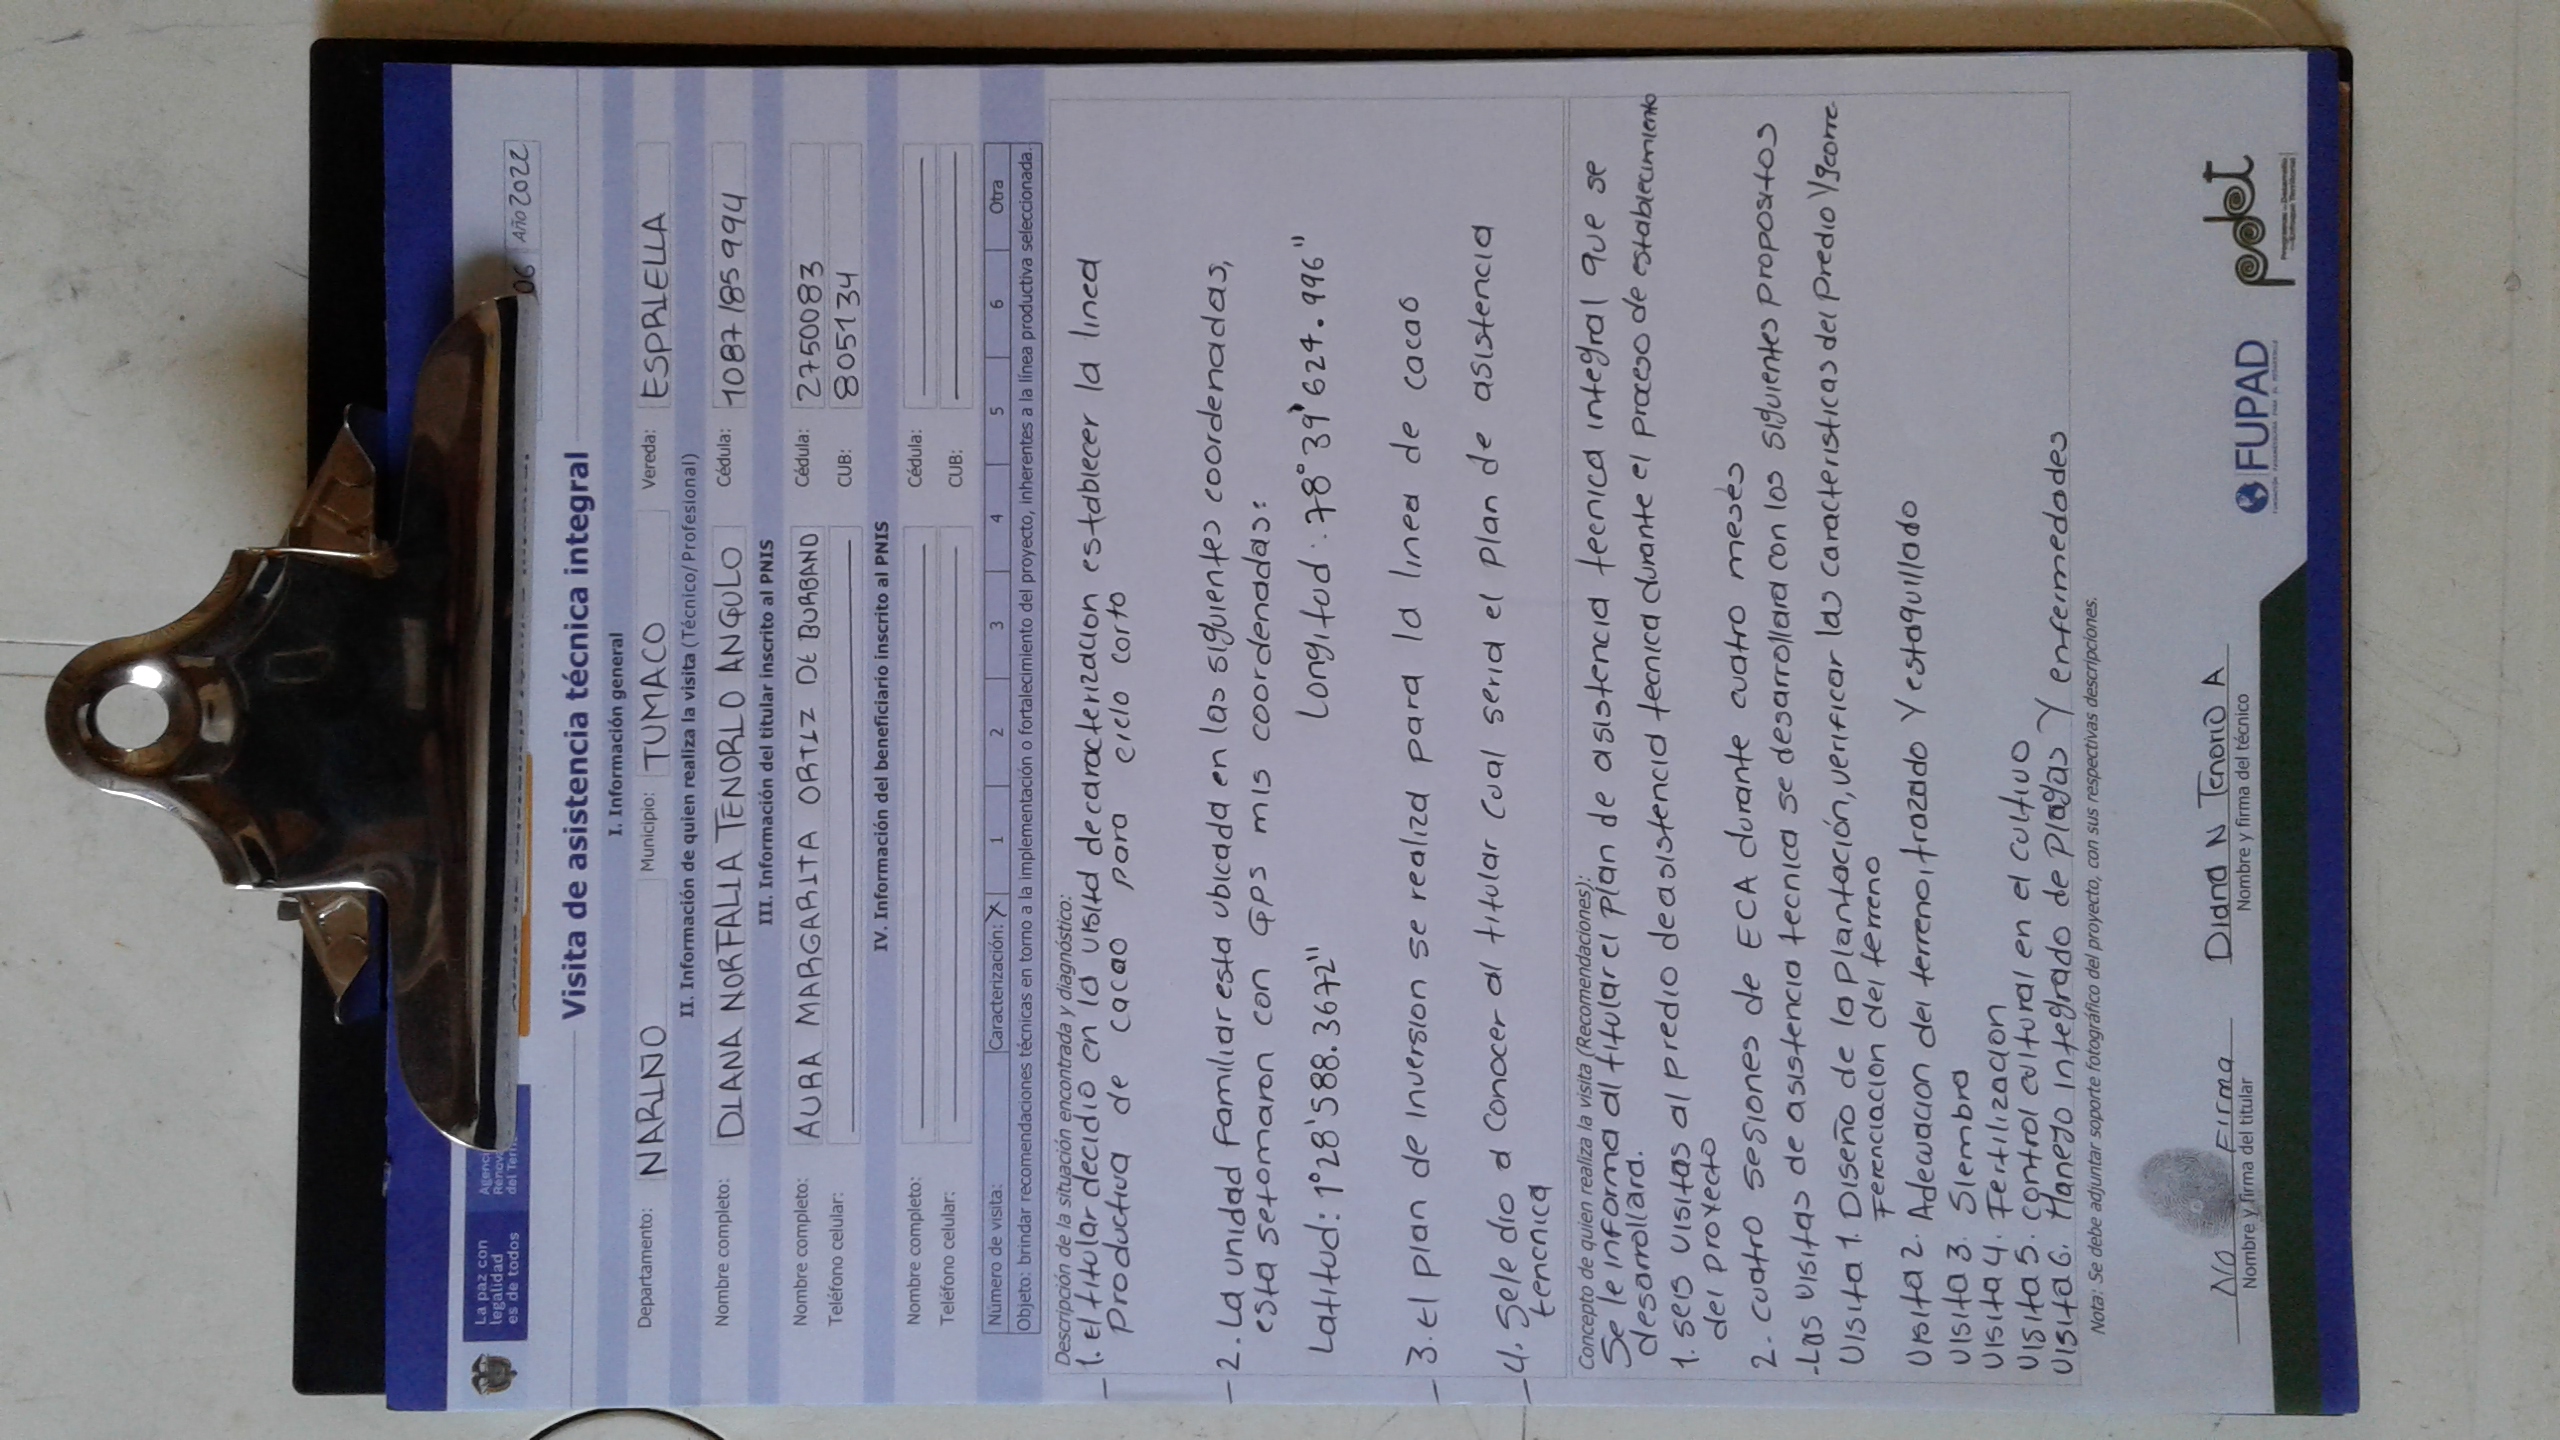 La paz con
legalidad
es de todos
06 Año 2022
Visita de asistencia técnica integral
I. Información general
Departamento: NARIÑO Municipio: TUMACO Vereda: ESPRIELLA
II. Información de quien realiza la visita (Técnico/Profesional)
Nombre completo: DIANA NORFALIA TENORIO ANGULO Cédula: 1087185994
III. Información del titular inscrito al PNIS
Nombre completo: AURA MARGARITA ORTIZ DE BURBANO Cédula: 27500083
Teléfono celular: CUB: 8051734
IV. Información del beneficiario inscrito al PNIS
Nombre completo: Cédula:
Teléfono celular: CUB:
Número de visita: Caracterización: X 1 2 3 4 5 6 Otra
Objeto: brindar recomendaciones técnicas en torno a la implementación o fortalecimiento del proyecto, inherentes a la línea productiva seleccionada.
Descripción de la situación encontrada y diagnóstico:
- 1. El titular decidio en la visita de caracterizacion establecer la linea
productiva de cacao para ciclo corto
- 2. La unidad familiar esta ubicada en las siguientes coordenadas,
esta se tomaron con GPS mis coordenadas:
Latitud: 1°28'588.3672" Longitud: 78°39'624.996"
- 3. El plan de inversion se realiza para la linea de cacao
- 4. Se le dio a conocer al titular cual seria el plan de asistencia
tencnica
Concepto de quien realiza la visita (Recomendaciones):
Se le informa al titular el plan de asistencia tecnica integral que se
desarrollara.
1. seis visitas al predio de asistencia tecnica durante el proceso de establecimiento
del proyecto
2. cuatro sesiones de ECA durante cuatro meses
- Las visitas de asistencia tecnica se desarrollara con los siguientes propositos
Visita 1. Diseño de la plantación, verificar las caracteristicas del predio y georre-
ferenciacion del terreno
Visita 2. Adecuacion del terreno, trazado y estaquillado
Visita 3. Siembra
Visita 4. Fertilizacion
Visita 5. control cultural en el cultivo
Visita 6. Manejo integrado de plagas y enfermedades
Nota: Se debe adjuntar soporte fotográfico del proyecto, con sus respectivas descripciones.
No Firma Diana N Tenorio A
Nombre y firma del titular Nombre y firma del técnico
FUPAD
pdet